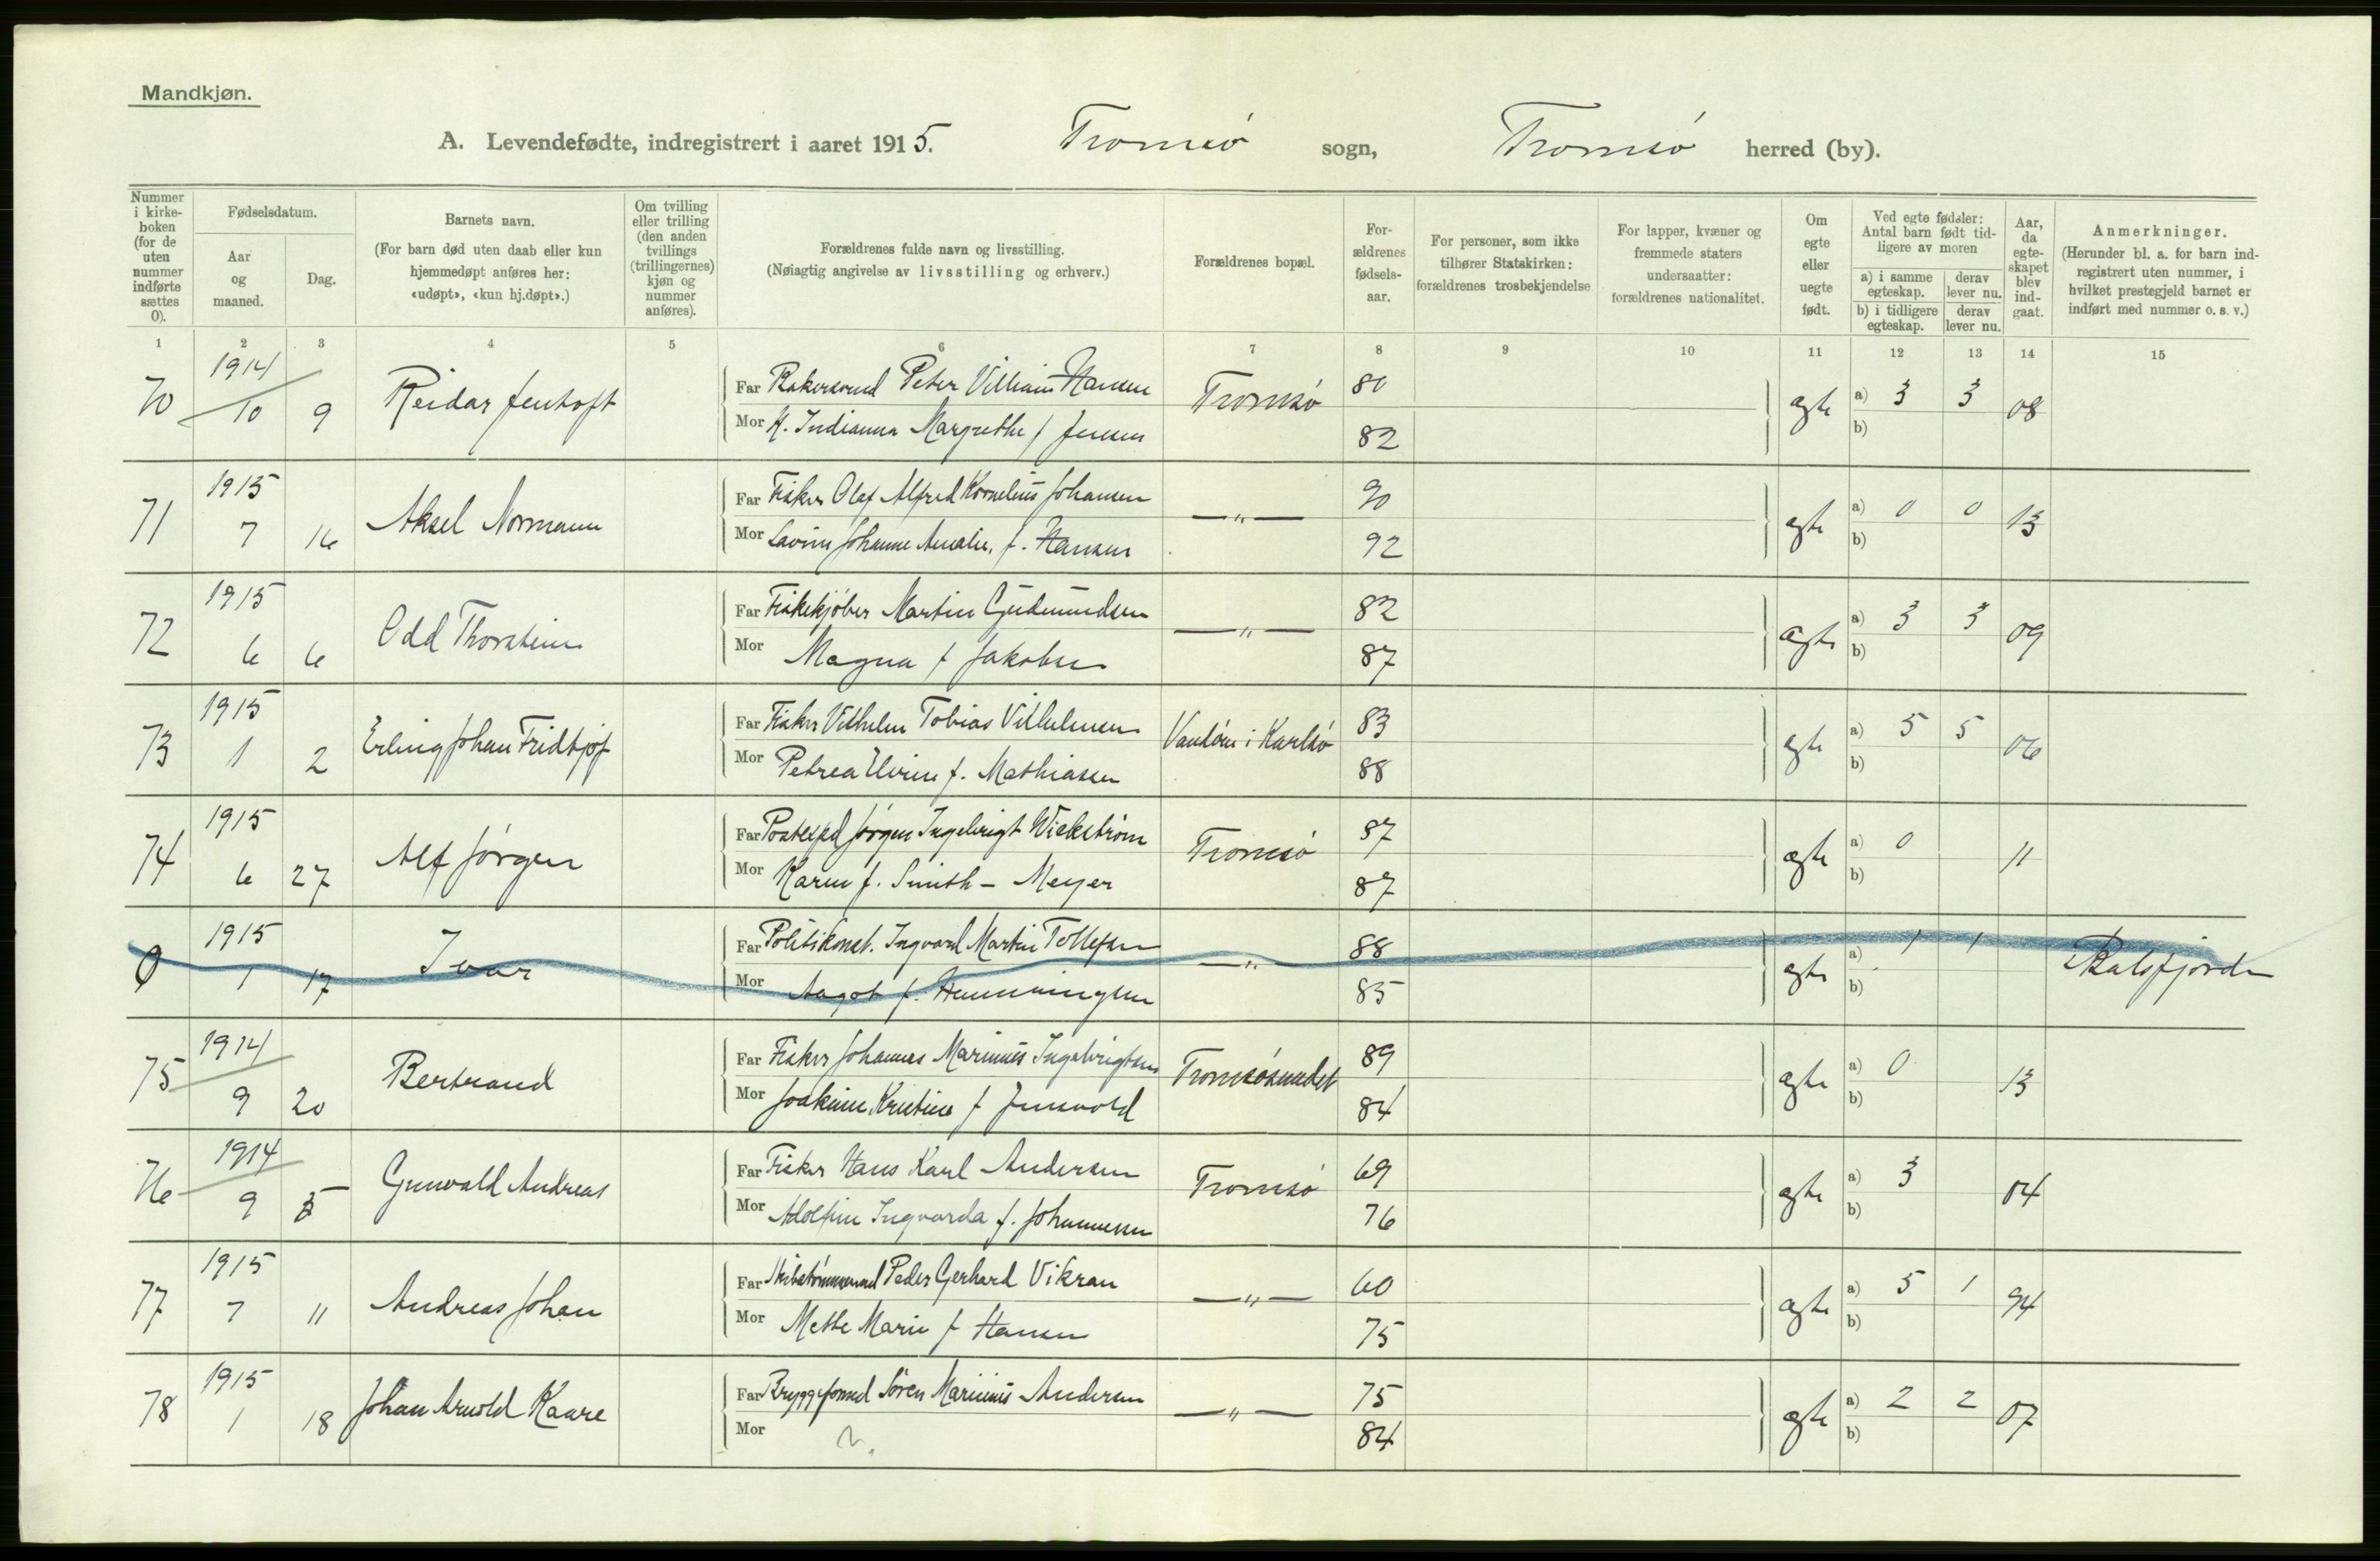 Mandkjøn.
A. Levendefødte, indregistrert i aaret 1915. Tromsø sogn, Tromsø herred (by).
Nummer i kirkeboken (for de uten nummer indførte sættes 0).
Fødselsdatum.
Aar og maaned.
Dag.
Barnets navn.
(For barn død uten daab eller kun hjemmedøpt anføres her: «udøpt», «kun hj.døpt».)
Om tvilling eller trilling (den anden tvillings (trillingernes) kjøn og nummer anføres).
Forældrenes fulde navn og livsstilling.
(Nøiagtig angivelse av livsstilling og erhverv.)
Forældrenes bopæl.
Forældrenes fødselsaar.
For personer, som ikke tilhører Statskirken: forældrenes trosbekjendelse
For lapper, kvæner og fremmede staters undersaatter: forældrenes nationalitet.
Om egte eller uegte født.
Ved egte fødsler: Antal barn født tidligere av moren
a) i samme egteskap.
derav lever nu.
b) i tidligere egteskap.
derav lever nu.
Aar, da egteskapet blev indgaat.
Anmerkninger.
(Herunder bl. a. for barn indregistrert uten nummer, i hvilket prestegjeld barnet er indført med nummer o. s. v.)
1 2 3 4 5 6 7 8 9 10 11 12 13 14 15
70 1914 10 9 Reidar Jentoft Far Peter Villiam Hansen Tromsø 80 egte a) 3 3 08
Mor K. Indianna Margrethe f Jensen 82 b)
71 1915 7 16 Aksel Normann Far Fisker Olaf Alfred Kornelius Johansen —„— 90 egte a) 0 0 13
Mor Lavine Johanne Amalie, f. Hansen 92 b)
72 1915 6 6 Odd Thorstein Far Fiskekjøber Martin Gudmundsen —„— 82 egte a) 3 3 09
Mor Magna f Jakobsen 87 b)
73 1915 1 2 Erling Johan Fridtjof Far Fisker Vilhelm Tobias Vilhelmsen i Karlsø 83 egte a) 5 5 06
Mor Petrea Elvine f. Mathiasen 88 b)
74 1915 6 27 Alf Jørgen Far Postexpd Jørgen Ingebrigt Wickstrøm Tromsø 87 egte a) 0 11
Mor Karen f. Smith - Meyer 87 b)
0 1915 1 17 Ivar Far Politikonst. Ingvard Martin Tollefsen —„— 88 egte a) 1 1 Balsfjorden
Mor Aagot f. Henningsen 85 b)
75 1914 9 20 Bertrand Far Fisker Johannes Marinius Ingebrigtsen Tromsøsundet 89 egte a) 0 13
Mor Joakime Kristine f Jensvold 84 b)
76 1914 9 5 Gunvald Andreas Far Fisker Hans Karl Andersen Tromsø 69 egte a) 3 04
Mor Adolfine Ingvarda f. Johannesen 76 b)
77 1915 7 11 Andreas Johan Far Skibstømmermd Peder Gerhard Vikran —„— 60 egte a) 5 1 94
Mor Mette Marie f Hansen 75 b)
78 1915 1 18 Johan Arnold Kaare Far Bryggeformd Søren Marinius Andersen —„— 75 egte a) 2 2 07
Mor ? 84 b)